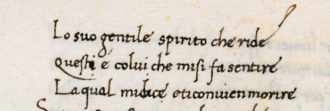 Lo suo gentile spirito che ride
Questi é colui che misi fa sentire
La qual midice eticonvien morire